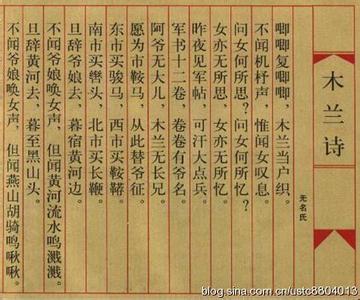 木兰诗
无名氏
唧唧复唧唧，木兰当户织。
不闻机杼声，惟闻女叹息。
问女何所思？问女何所忆？
女亦无所思，女亦无所忆。
昨夜见军帖，可汗大点兵。
军书十二卷，卷卷有爷名。
阿爷无大儿，木兰无长兄。
愿为市鞍马，从此替爷征。
东市买骏马，西市买鞍鞯。
南市买辔头，北市买长鞭。
旦辞爷娘去，暮宿黄河边。
不闻爷娘唤女声，但闻黄河流水鸣溅溅。
旦辞黄河去，暮至黑山头。
不闻爷娘唤女声，但闻燕山胡骑鸣啾啾。
blog.sina.com.cn/ustc8804013